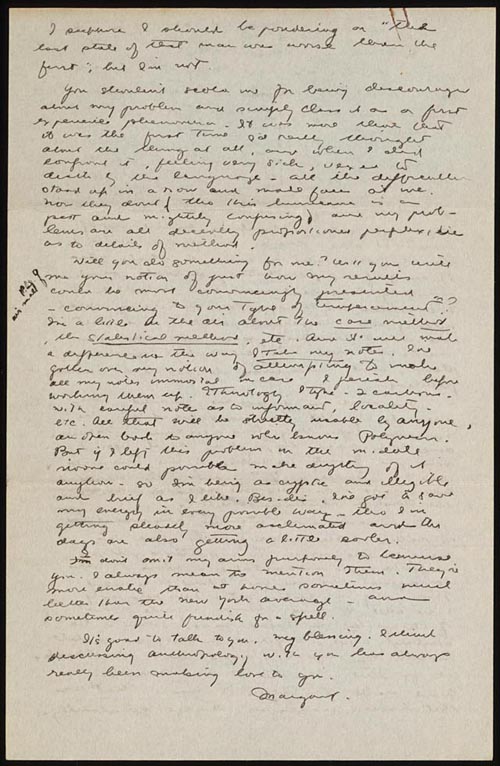 I suppose I should be pondering on "the
last state of that man was worse than the
first"; but I'm not.
You shouldn't scold me for being discouraged
about my problem and simply class it as a first
experience phenomenon. It was more that that
it was the first time I'd really thought
about the thing at all, and when I did
confront it feeling very sick, vexed to
death by the language - all the difficulties
stood up in a row and made faces at me.
Now they don't (tho this hurricane is an
past and mightily confusing) and my prob-
lems are all decently proportioned perplexities
as to details of method.
Will you do something for me? Will you write
me your notion of just how my results
could be most convincingly presented
- convincing to your type of
I'm a little in the air about the case method,
the statistical method, etc. And it will make
a difference in the way I take my notes. I've
gotten over my notion of attempting to make
all my notes immortal in case I perish before
working them up. Ethnology I type - 2 carbons -
with careful note as to informant, locality -
etc. All that will be strictly usable by anyone,
an open book to anyone who knows Polynesia.
But if I left this problem in the middle
no one could possibly make anything of it
anyhow - so I'm being as cryptic and illegible
and brief as I like. Besides, I've got to save
my energy in every possible way - tho I'm
getting slowly more acclimated and the
days are also getting a little cooler.
I don't omit my arms purposely to
you. I always mean to mention them. They're
more erratic than at home sometimes much
better than the New York average - and
sometimes quite fiendish for a spell.
It's good to talk to you, my blessing. I think
discussing anthropology with you has always
really been making love to you.
Margaret.
air mail